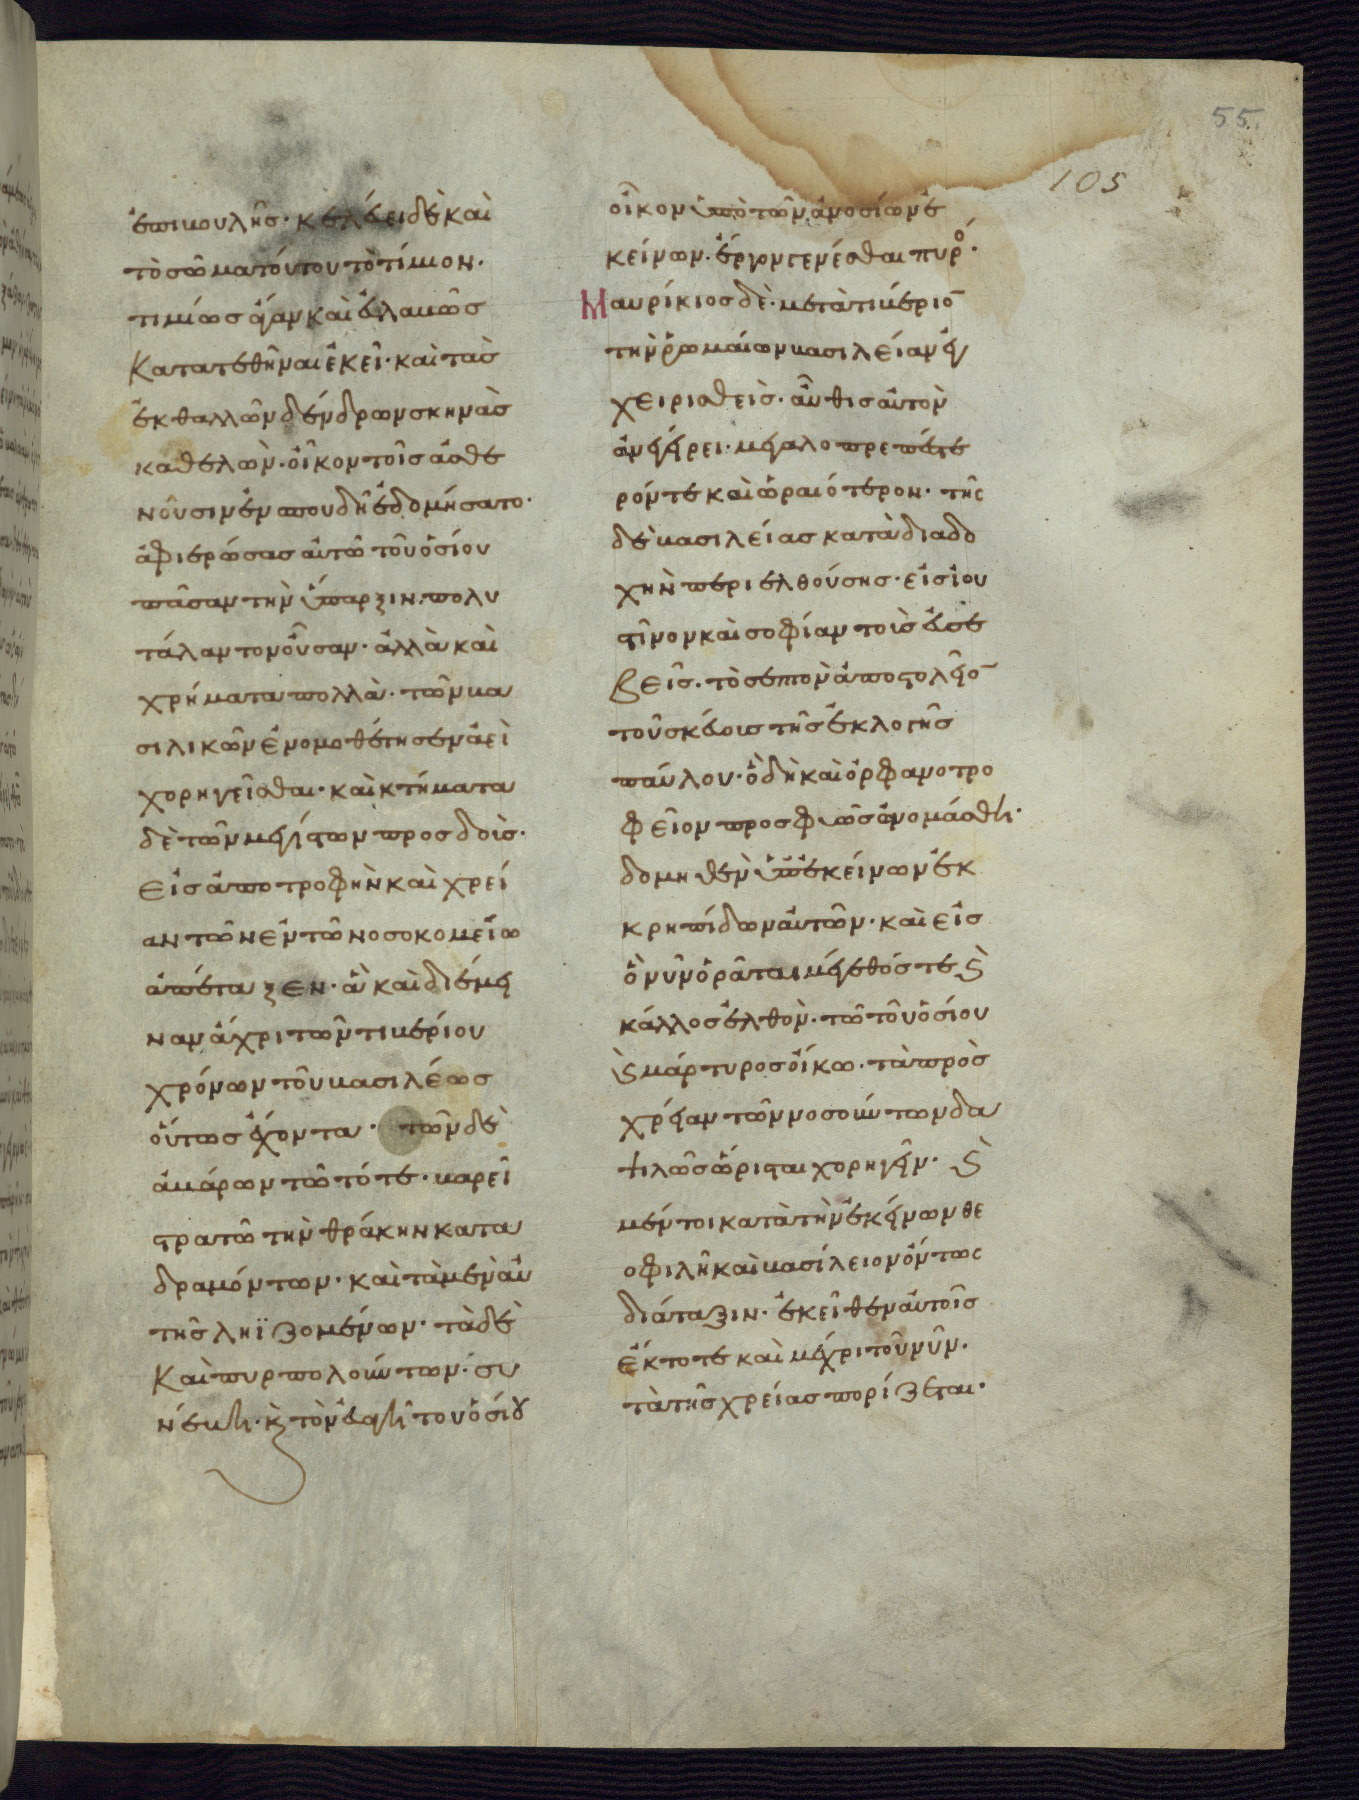 55
105
ἐπιβουλῆς· κελεύει δὲ καὶ
τὸ σῶμα τούτου τὸ τίμιον·
τιμίως ἄγαν καὶ εὐλαβῶς
κατατεθῆναι ἐκεῖ· καὶ τὰς
ἐκ θαλλῶν δένδρων σκηνὰς
καθελὼν· οἶκον τοῖς ἀσθε
νοῦσιν ἐν σπουδῆ ἐδομήσατο·
ἀφιερώσας αὐτῶ τοῦ ὁσίου
πᾶσαν τὴν ὕπαρξιν· πολυ
τάλαντον οὖσαν· ἀλλὰ καὶ
χρήματα πολλὰ· τῶν βα
σιλικῶν ἐνομοθέτησεν ἀεὶ
χορηγεῖσθαι· καὶ κτήματα
δὲ τῶν μεγίστων προσόδοις·
εἰς ἀποτροφὴν καὶ χρεί
αν τῶν ἐν τῶ νοσοκομείω
ἀπέταξεν· ἃ καὶ διέμει
ναν ἄχρι τῶν τιβερίου
χρόνων τοῦ βασιλέως
οὕτως ἔχοντα· τῶν δὲ
ἀβάρων τῶ τότε· βαρεῖ
στρατῶ τὴν θράκην κατα
δραμόντων· καὶ τὰ μὲν αὐ
τῆς ληϊζομένων· τὰ δὲ
καὶ πυρπολούντων· συ
νέβη· κ τὸν εὐαγῆ τοῦ ὁσίου
οἶκον ὑπὸ τῶν ἀνοσίων ἐ
κείνων· ἔργον γενέσθαι πυρό·
Μαυρίκιος δὲ· μετὰ τιβέριο
τὴν ῥωμαίων βασιλείαν ἐγ
χειρισθεὶς· αὖθις αὐτὸν
ἀνεγείρει· μεγαλοπρεπέστε
ρόν τε καὶ ὡραιότερον· τῆς
δὲ βασιλείας κατὰ διαδο
χὴν περιελθούσης· εἰς ἰου
στῖνον καὶ σοφίαν τοὺς εὐσε
βεῖς· τὸ σεπτὸν ἀποστολεῖο
τοῦ σκεύους τῆς ἐκλογῆς
παύλου· ὃ δὴ καὶ ὀρφανοτρο
φεῖον προσφυῶς ὠνομάσθη·
δομηθὲν ὑπ' ἐκείνων ἐκ
κρηπίδων αὐτῶν· καὶ εἰς
ὃ νῦν ὁρᾶται μέγεθός τε κ
κάλλος ἐλθὸν· τῶ τοῦ ὁσίου
κ μάρτυρος οἴκω· τὰ πρὸς
χρείαν τῶν νοσούντων δα
ψιλῶς ὥρισται χορηγεῖν· κ
μέντοι κατὰ τὴν ἐκείνων θε
οφιλῆ καὶ βασίλειον ὄντως
διάταξιν· ἐκεῖθεν αὐτοῖς
ἔκτοτε καὶ μέχρι τοῦ νῦν·
τὰ τῆς χρείας πορίζεται·